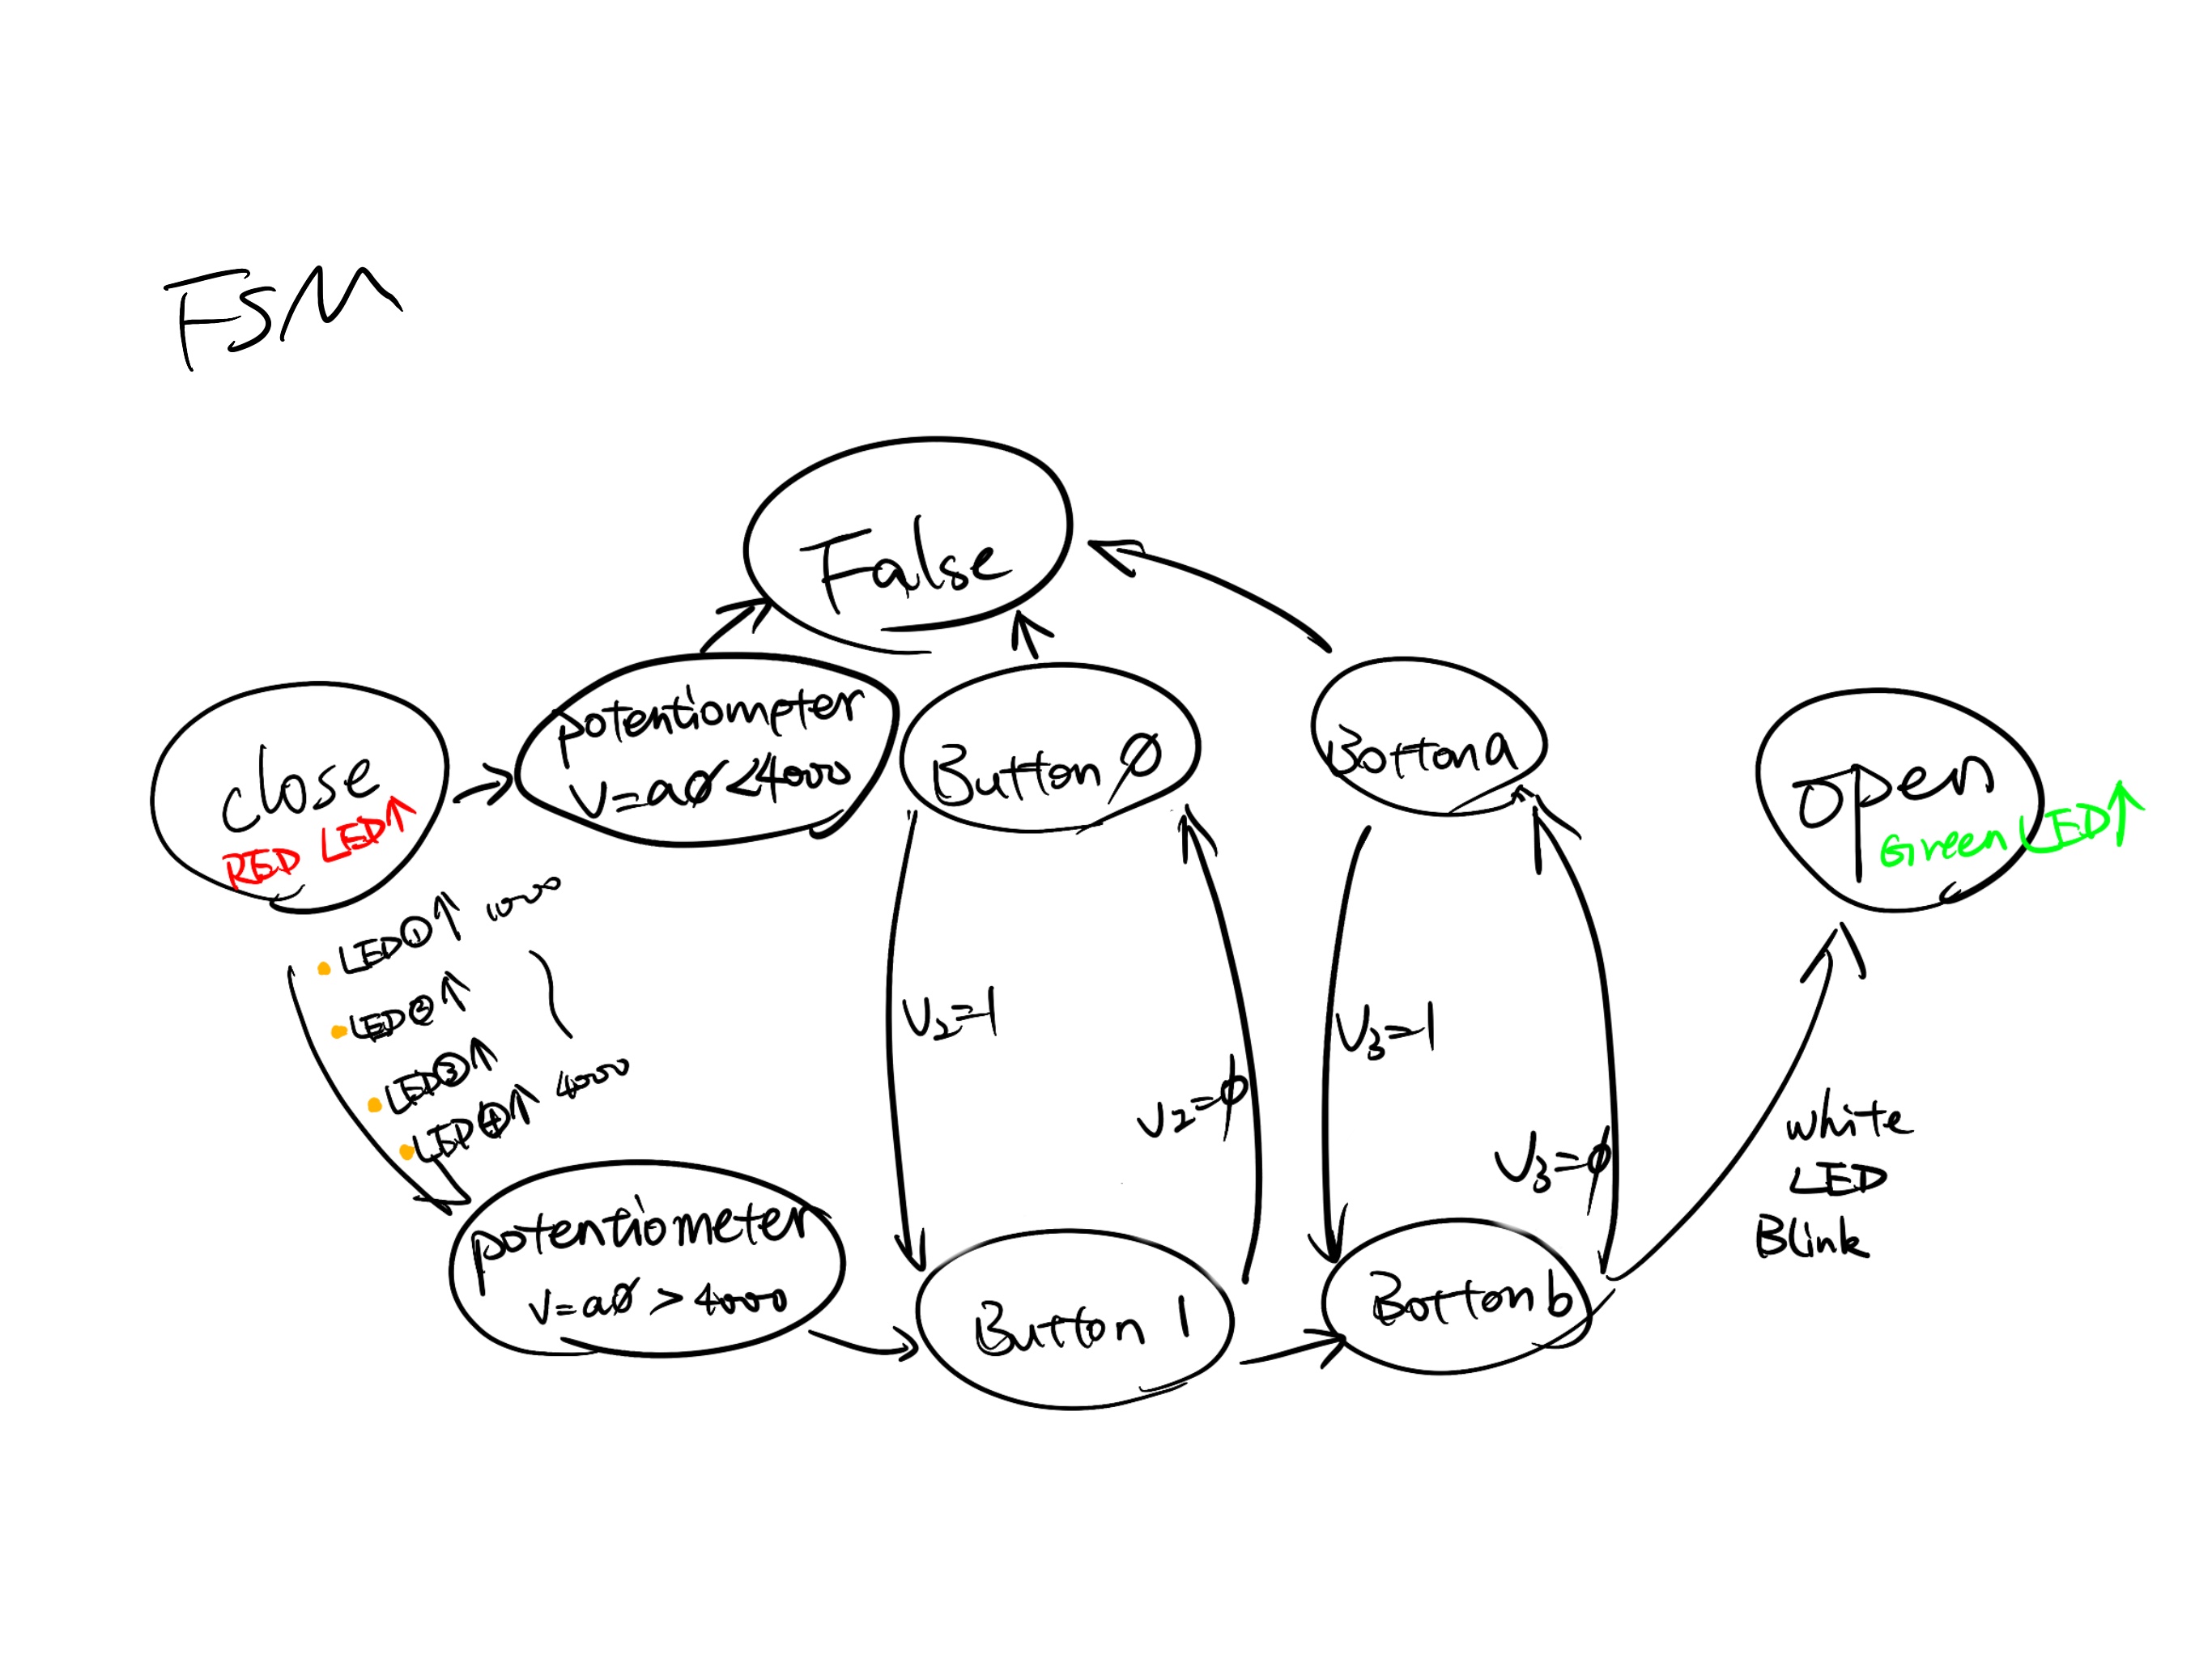 FSM
False
close
RED LED↑
potentiompter
V=aø<4000
Button ø
Botton a
open
Green LED↑
LED①↑ 1000
LED②↑
LED③↑
LED④↑ 4000
V₂=1
V₂=ø
V₃=1
V₃=ø
white
LED
Blink
potentiometer
V=aø >4000
Button 1
Botton b